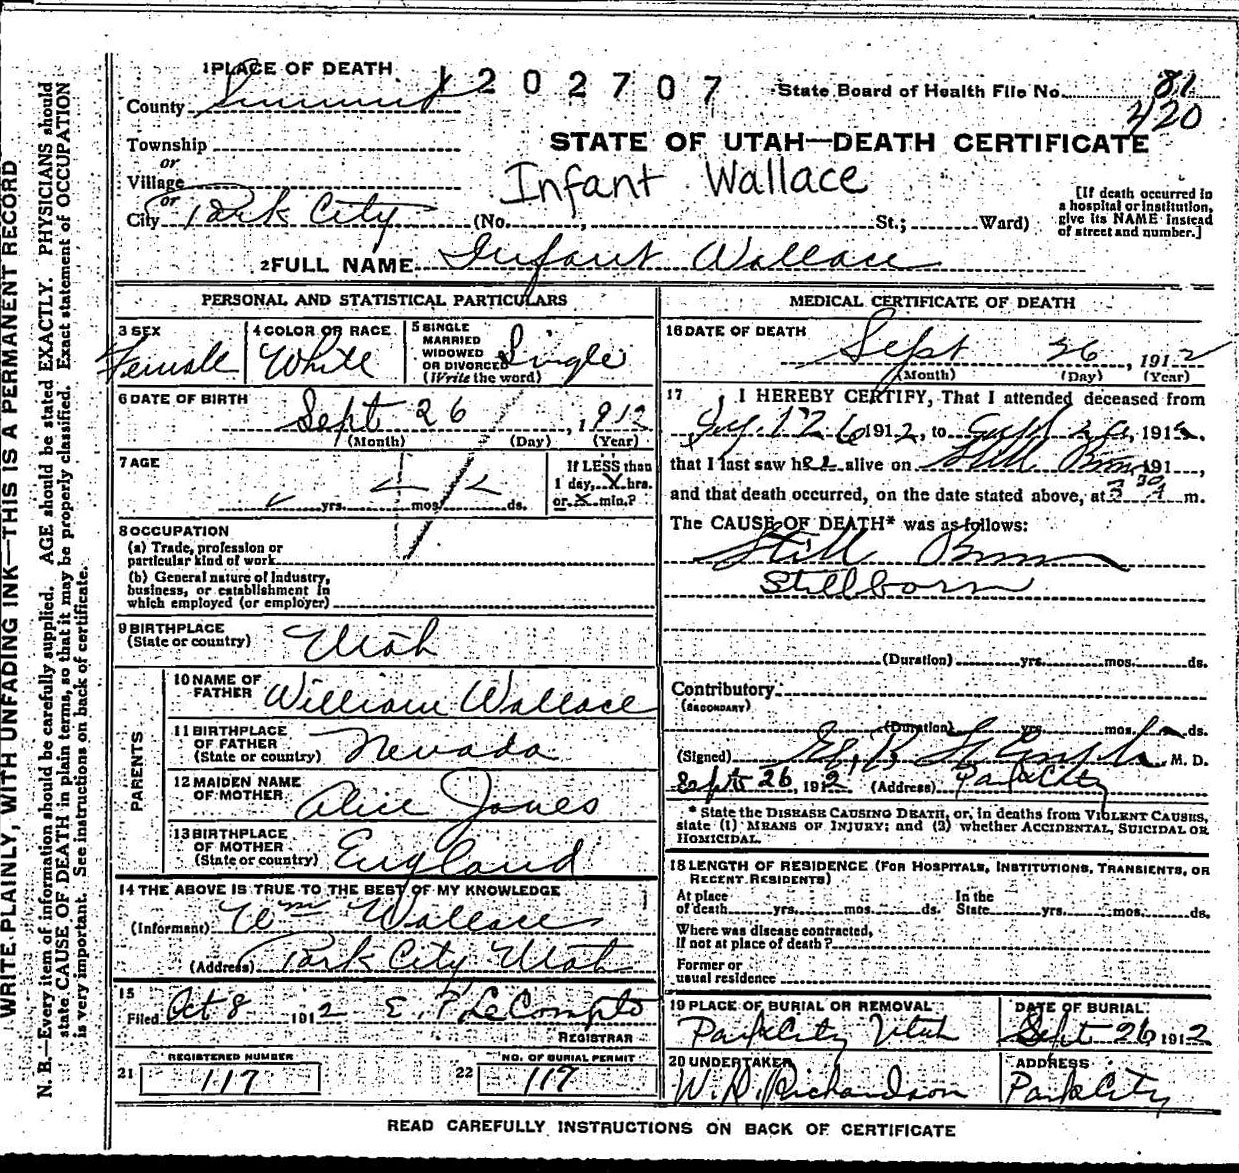 1 PLACE OF DEATH
1202707
State Board of Health File No. 81
420
County Summit
STATE OF UTAH—DEATH CERTIFICATE
Township
or
Village
Infant Wallace
or
City Park City (No. , St.; Ward)
[If death occurred in
a hospital or institution,
give its NAME instead
of street and number.]
2 FULL NAME Infant Wallace
PERSONAL AND STATISTICAL PARTICULARS
3 SEX
Female
4 COLOR OR RACE
White
5 SINGLE
MARRIED
WIDOWED
OR DIVORCED
(Write the word)
Single
6 DATE OF BIRTH
Sept 26, 1912
(Month) (Day) (Year)
7 AGE
yrs. mos. ds.
If LESS than
1 day, X hrs.
or X min.?
8 OCCUPATION
(a) Trade, profession or
particular kind of work
(b) General nature of industry,
business, or establishment in
which employed (or employer)
9 BIRTHPLACE
(State or country)
Utah
PARENTS
10 NAME OF
FATHER
William Wallace
11 BIRTHPLACE
OF FATHER
(State or country)
Nevada
12 MAIDEN NAME
OF MOTHER
Alice Jones
13 BIRTHPLACE
OF MOTHER
(State or country)
England
14 THE ABOVE IS TRUE TO THE BEST OF MY KNOWLEDGE
(Informant) Wm Wallace
(Address) Park City Utah
15
Filed Oct 8 1912 E. P. LeCompte
REGISTRAR
REGISTERED NUMBER
21 117
NO. OF BURIAL PERMIT
22 117
MEDICAL CERTIFICATE OF DEATH
16 DATE OF DEATH
Sept 26, 1912
(Month) (Day) (Year)
17 I HEREBY CERTIFY, That I attended deceased from
26 1912, to Sept 26, 1912.
that I last saw her alive on Still Born 191 ,
and that death occurred, on the date stated above, at 3 30 A m.
The CAUSE OF DEATH* was as follows:
Still Born
Stillborn
(Duration) yrs. mos. ds.
Contributory
(SECONDARY)
(Duration) yrs. mos. ds.
(Signed) M. D.
Sept 26, 1912 (Address) Park City
* State the DISEASE CAUSING DEATH, or, in deaths from VIOLENT CAUSES,
state (1) MEANS OF INJURY; and (2) whether ACCIDENTAL, SUICIDAL OR
HOMICIDAL.
18 LENGTH OF RESIDENCE (FOR HOSPITALS, INSTITUTIONS, TRANSIENTS, OR
RECENT RESIDENTS)
At place
of death yrs. mos. ds.
In the
State yrs. mos. ds.
Where was disease contracted,
if not at place of death?
Former or
usual residence
19 PLACE OF BURIAL OR REMOVAL
Park City Utah
DATE OF BURIAL
Sept 26 1912
20 UNDERTAKER
W. D. Richardson
ADDRESS
Park City
READ CAREFULLY INSTRUCTIONS ON BACK OF CERTIFICATE
WRITE PLAINLY, WITH UNFADING INK—THIS IS A PERMANENT RECORD
N. B.—Every item of information should be carefully supplied. AGE should be stated EXACTLY. PHYSICIANS should
state CAUSE OF DEATH in plain terms, so that it may be properly classified. Exact statement of OCCUPATION
is very important. See instructions on back of certificate.